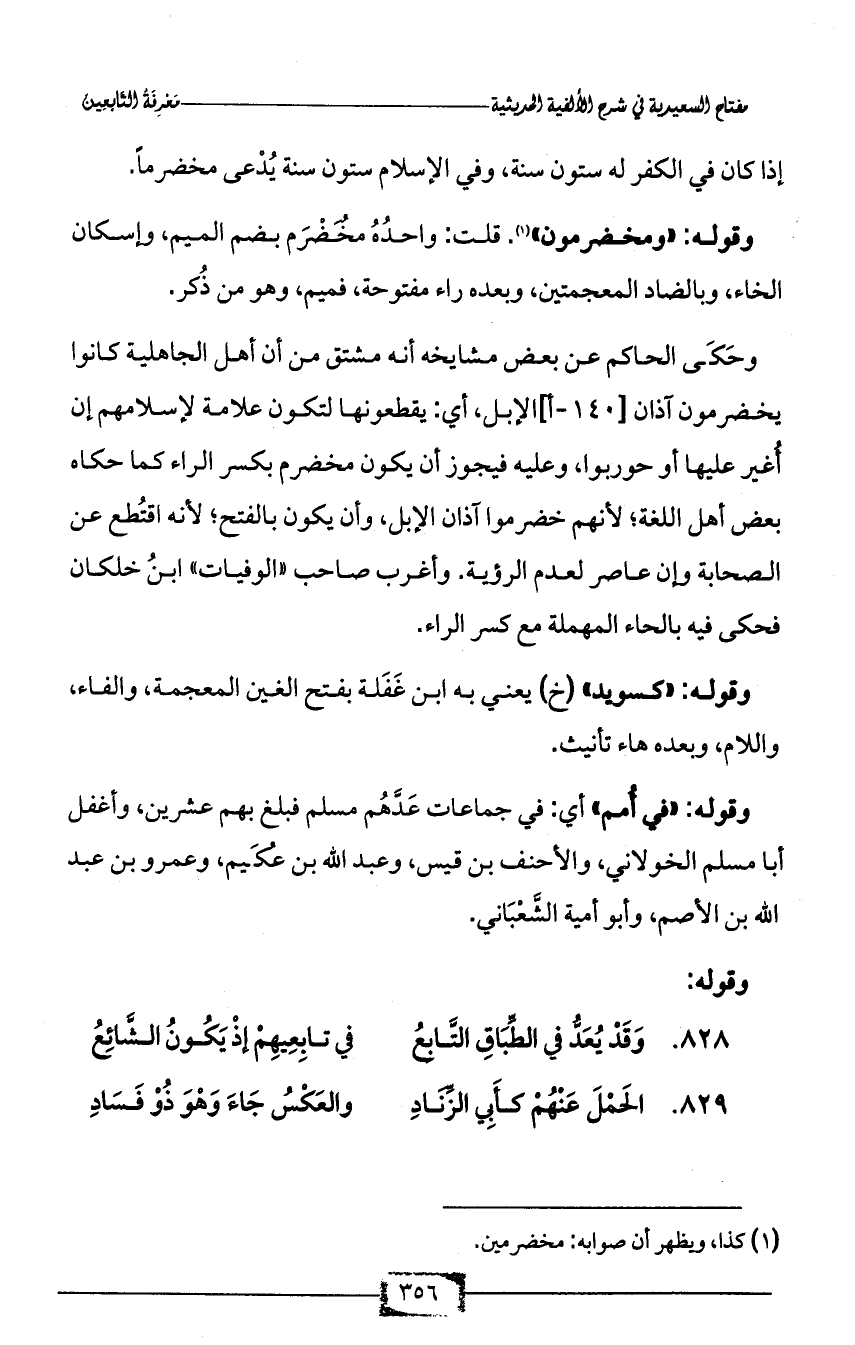 مفتاح السعيدية في شرح الألفية الحديثية ــــــــــــــ مَعْرِفَةُ التَّابِعِين
إذا كان في الكفر له ستون سنة، وفي الإسلام ستون سنة يُدْعى مخضرماً.
وقوله: «ومخضرمون»(١). قلت: واحدُهُ مخُضْرَم بضم الميم، وإسكان
الخاء، وبالضاد المعجمتين، وبعده راء مفتوحة، فميم، وهو من ذُكر.
وحَكَى الحاكم عن بعض مشايخه أنه مشتق من أن أهل الجاهلية كانوا
يخضرمون آذان [١٤٠-أ] الإبل، أي: يقطعونها لتكون علامة لإسلامهم إن
أُغير عليها أو حوربوا، وعليه فيجوز أن يكون مخضرم بكسر الراء كما حكاه
بعض أهل اللغة؛ لأنهم خضرموا آذان الإبل، وأن يكون بالفتح؛ لأنه اقتُطع عن
الصحابة وإن عاصر لعدم الرؤية. وأغرب صاحب «الوفيات» ابنُ خلكان
فحكى فيه بالحاء المهملة مع كسر الراء.
وقوله: «كسويد» (خ) يعني به ابن غَفَلة بفتح الغين المعجمة، والفاء،
واللام، وبعده هاء تأنيث.
وقوله: «في أُمم» أي: في جماعات عَدَّهُم مسلم فبلغ بهم عشرين، وأغفل
أبا مسلم الخولاني، والأحنف بن قيس، وعبد الله بن عكَيم، وعمرو بن عبد
الله بن الأصم، وأبو أمية الشَّعْبَاني.
وقوله:
٨٢٨. وَقَدْ يُعَدُّ في الطِّبَاقِ التَّابِعُ في تابِعِيهِمْ إذْ يَكُونُ الشَّائِعُ
٨٢٩. الحَمْلَ عَنْهُمْ كَأَبي الزِّنَادِ والعَكْسُ جَاءَ وَهْوَ ذُوْ فَسَادِ
(١) كذا، ويظهر أن صوابه: مخضرمين.
٣٥٦